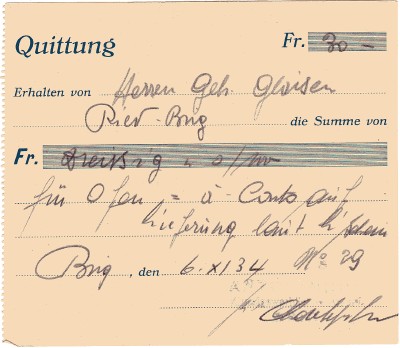 Quittung Fr. 30 -
Erhalten von Herren Geb. Gloisen
Ried-Brig die Summe von
Fr. Dreissig u 0/100
für Ofen = à-Conto auf
Lieferung laut
Brig, den 6. XI 34 No 29